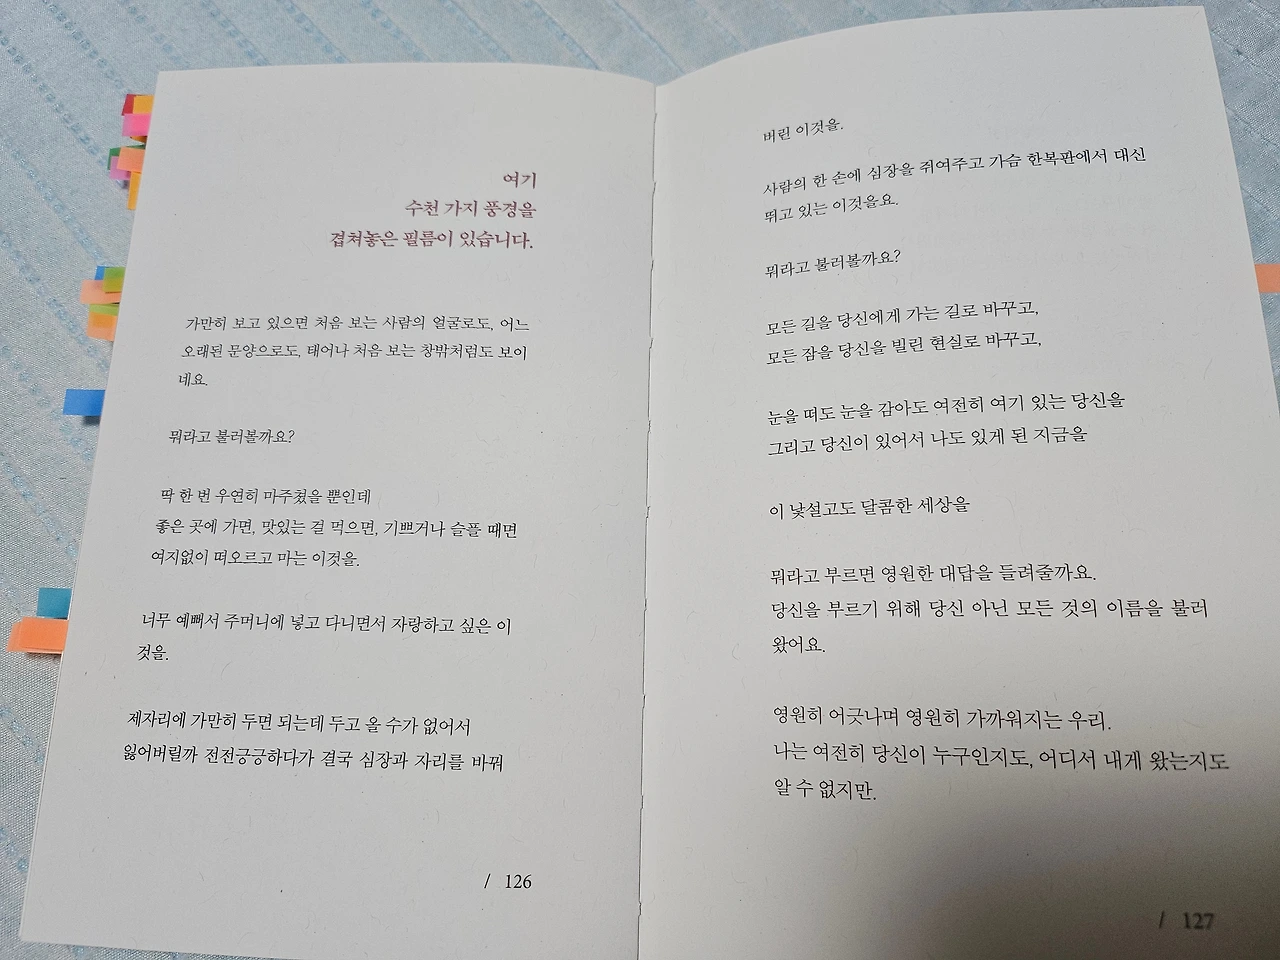 여기
수천 가지 풍경을
겹쳐놓은 필름이 있습니다.
가만히 보고 있으면 처음 보는 사람의 얼굴로도, 어느
오래된 문양으로도, 태어나 처음 보는 창밖처럼도 보이
네요.
뭐라고 불러볼까요?
딱 한 번 우연히 마주쳤을 뿐인데
좋은 곳에 가면, 맛있는 걸 먹으면, 기쁘거나 슬플 때면
여지없이 떠오르고 마는 이것을.
너무 예뻐서 주머니에 넣고 다니면서 자랑하고 싶은 이
것을.
제자리에 가만히 두면 되는데 두고 올 수가 없어서
잃어버릴까 전전긍긍하다가 결국 심장과 자리를 바꿔
/ 126
버린 이것을.
사람의 한 손에 심장을 쥐여주고 가슴 한복판에서 대신
뛰고 있는 이것을요.
뭐라고 불러볼까요?
모든 길을 당신에게 가는 길로 바꾸고,
모든 잠을 당신을 빌린 현실로 바꾸고,
눈을 떠도 눈을 감아도 여전히 여기 있는 당신을
그리고 당신이 있어서 나도 있게 된 지금을
이 낯설고도 달콤한 세상을
뭐라고 부르면 영원한 대답을 들려줄까요.
당신을 부르기 위해 당신 아닌 모든 것의 이름을 불러
왔어요.
영원히 어긋나며 영원히 가까워지는 우리.
나는 여전히 당신이 누구인지도, 어디서 내게 왔는지도
알 수 없지만.
/ 127